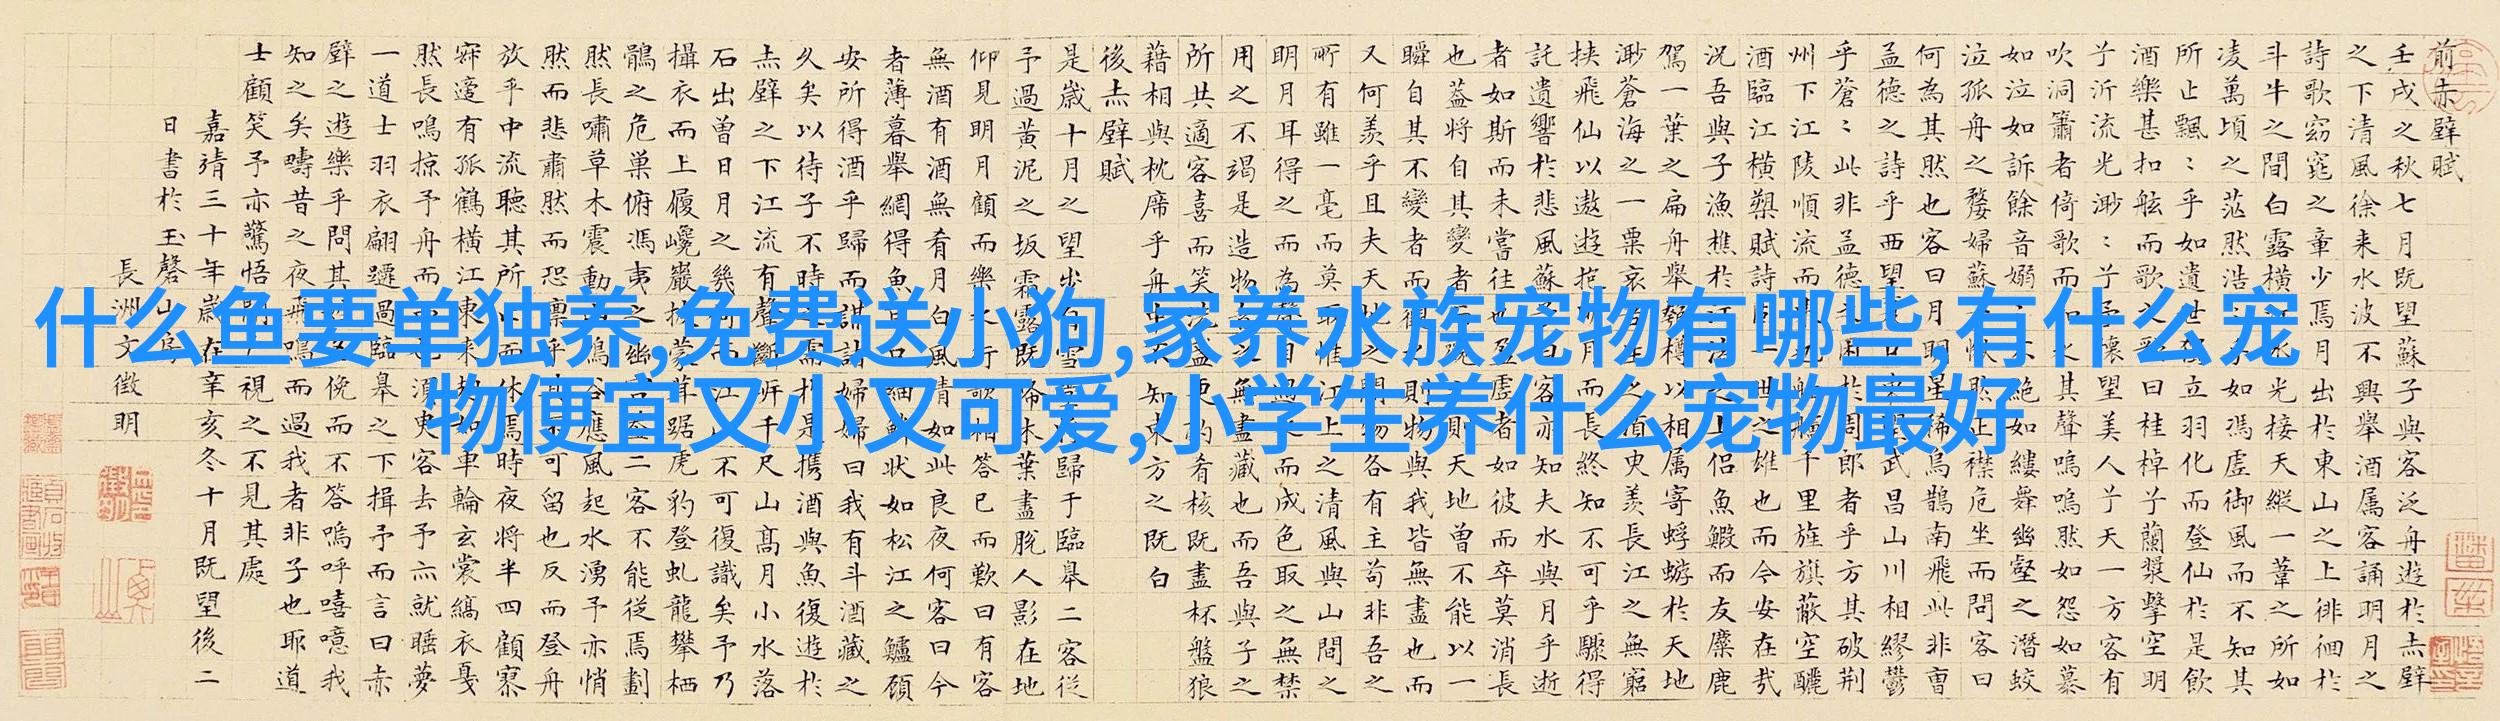 什么鱼要单独养,免费送小狗,家养水族宠物有哪些,有什么宠
物便宜又小又可爱,小学生养什么宠物最好
前赤壁賦
壬戌之秋七月既望蘇子與客泛舟遊於赤壁
之下清風徐来水波不興舉酒属客誦明月之
詩歌窈窕之章少焉月出於東山之上徘徊於
斗牛之間白露橫水光接天縱一葦之所如
凌萬頃之茫然浩如馮虛御風而不知其
所止飄〻乎如遺世立羽化而登仙於是飲
酒樂甚扣舷而歌之曰桂棹兮蘭槳擊空明
兮泝流光渺〻兮予懷望美人兮天一方客有
吹洞簫者倚歌而之其聲嗚嗚然如怨如慕
如泣如訴餘音嫋絕如縷舞幽壑之潛蛟
泣孤舟之嫠婦蘇然正襟危坐而問客曰
何為其然也客曰月明星稀烏鵲南飛此非曹
孟德之詩乎西望武昌山川相繆鬱
乎蒼〻此非孟德於周郎者乎方其破荊
州下江陵順流而千里旌旗蔽空釃
酒臨江橫槊賦詩之雄也而今安在哉
況吾與子漁樵於上侶魚鰕而友麋鹿
駕一葉之扁舟舉樽以相属寄蜉蝣於天地
渺蒼海之一粟哀之須臾羨長江之無窮
挟飛仙以遨遊抱月而長終知不可乎驟得
託遺響於悲風蘇客亦知夫水與月乎逝
者如斯而未嘗往也虛者如彼而卒莫消長
也蓋將自其變者則天地曾不能以一
瞬自其不變者而則物與我皆無盡也而
又何羨乎且夫天地之間物各有主苟非吾之
所有雖一毫而莫惟江上之清風與山間之
明月耳得之而為聲目而成色取之無禁
用之不竭是造物之無盡藏也而吾與子之
所共適客喜而笑更酌肴核既盡杯盤狼
藉相與枕席乎舟知東方之既白
後赤壁賦
是歲十月之望步自雪歸于臨皋二客從
予過黃泥之坂霜露既木葉盡脫人影在地
仰見明月顧而樂之行歌相答已而歎曰有客
無酒有酒無肴月白風清如此良夜何客曰今
者薄暮舉網得魚口細鱗狀如松江之鱸顧
安所得酒乎歸而謀諸婦婦曰我有斗酒藏之
久矣以待子不時需於是攜酒與魚復遊於
赤壁之下江流有聲斷岸千尺山高月小水落
石出曾日月之幾何而江不可復識矣予乃
攝衣而上履巉巖披蒙茸踞虎豹登虬龍攀栖
鶻之危巢俯馮夷之幽二客不能從焉劃
然長嘯草木震動鳴谷應風起水湧予亦悄
然而悲肅然而恐凜乎其可留也反而登舟
放乎中流聽其所而休焉時夜將半四顧寂
寥適有孤鶴橫江東来如車輪玄裳縞衣戛
然長鳴掠予舟而須臾客去予亦就睡夢
一道士羽衣翩躚過臨皋之下揖予而言曰赤
壁之遊樂乎問其俛而不答嗚呼噫嘻我
知之矣疇昔之夜飛鳴而過我者非子也耶道
士顧笑予亦驚悟視之不見其處
嘉靖三十年歲在辛亥冬十月既望後二
日書於玉磬山房
長洲文徵明